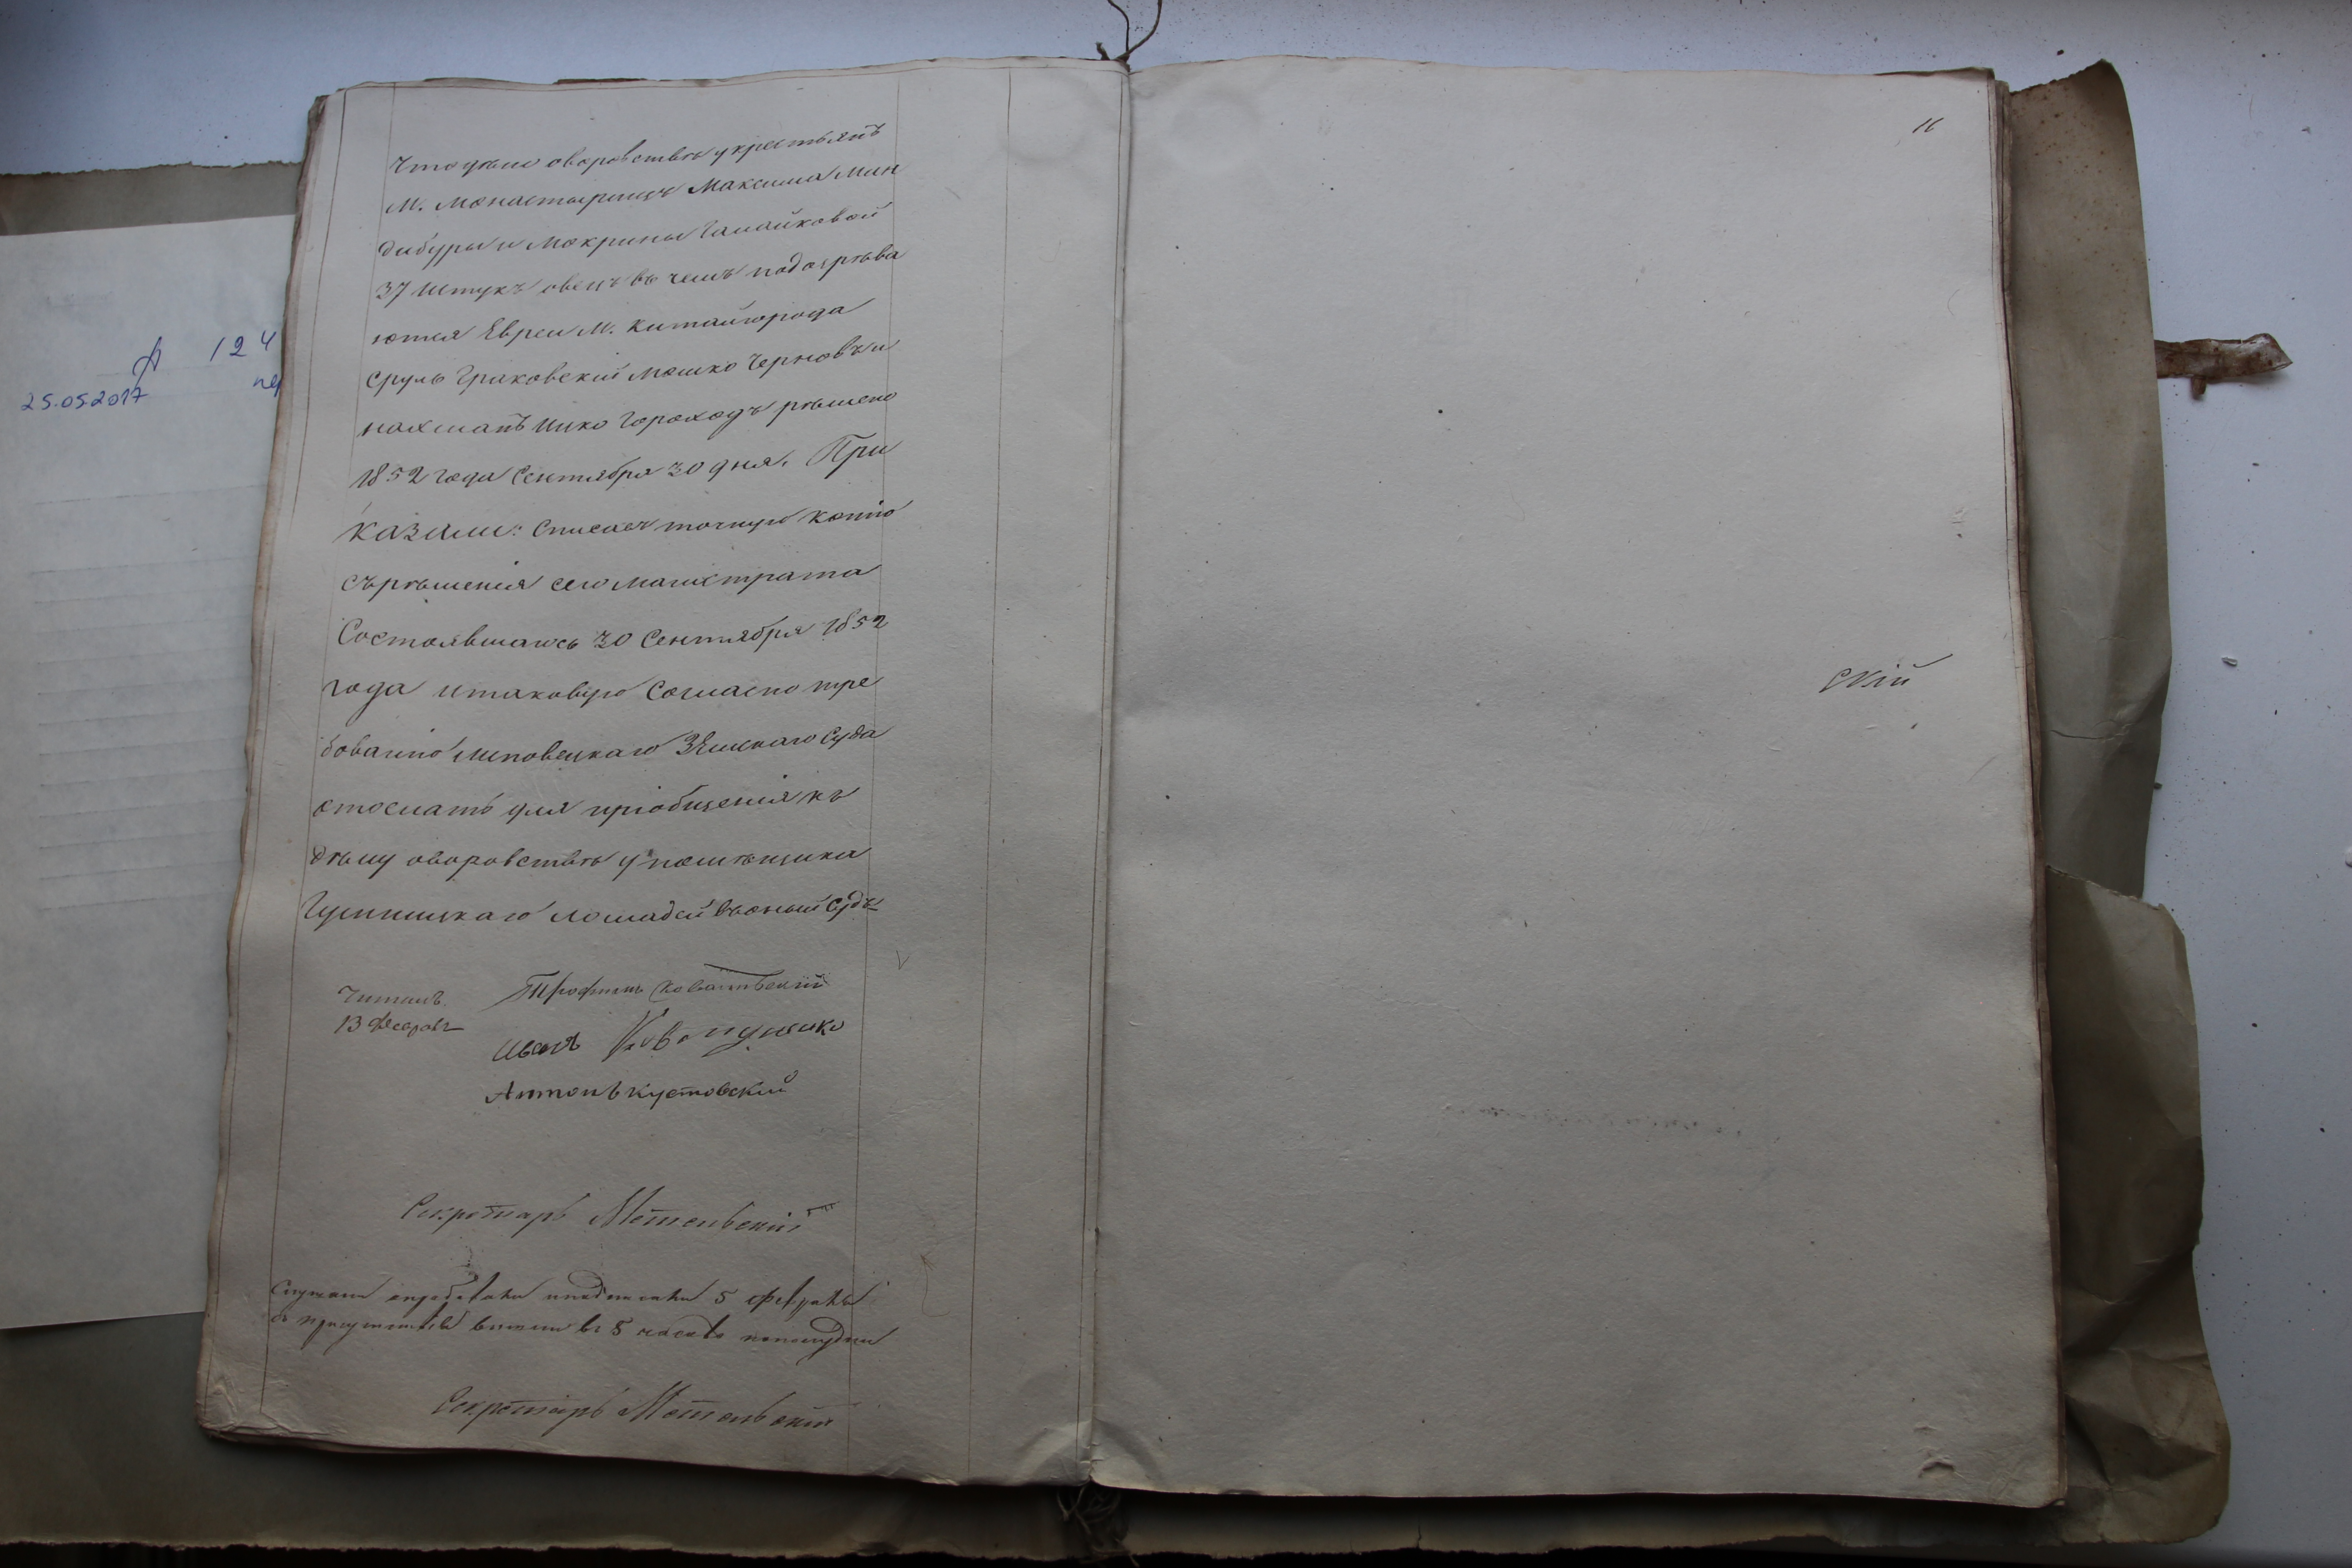 что дѣло о воровствѣ у крестьянъ
М. Монастырищъ Максима Мин
дибуры и Мокрины Гамайковой
37 штукъ овецъ въ чемъ подозрѣва
ются Евреи М. Китайгорода
Сруль Граковскій Мошко Черновъ и
Нахманъ Ицко Гороходъ рѣшено
1852 года Сентября 30 дня. При
казали: Списавъ точную копію
съ рѣшенія сего Магистрата
Состоявшагось 30 Сентября 1852
года и таковую Согласно тре
бованію Липовецкаго Земскаго Суда
отослать для пріобщенія къ
дѣлу о воровствѣ у помѣщика
лошадей въ оный Судъ
Читалъ
13 Февраля
Трофимъ
Иванъ
Антонъ Кустовский
Секретарь Метельскій
Слушали подписали 5 февраля
въ 5 часовъ пополудни
Секретарь Метельскій
11
скій
124
25.05.2017